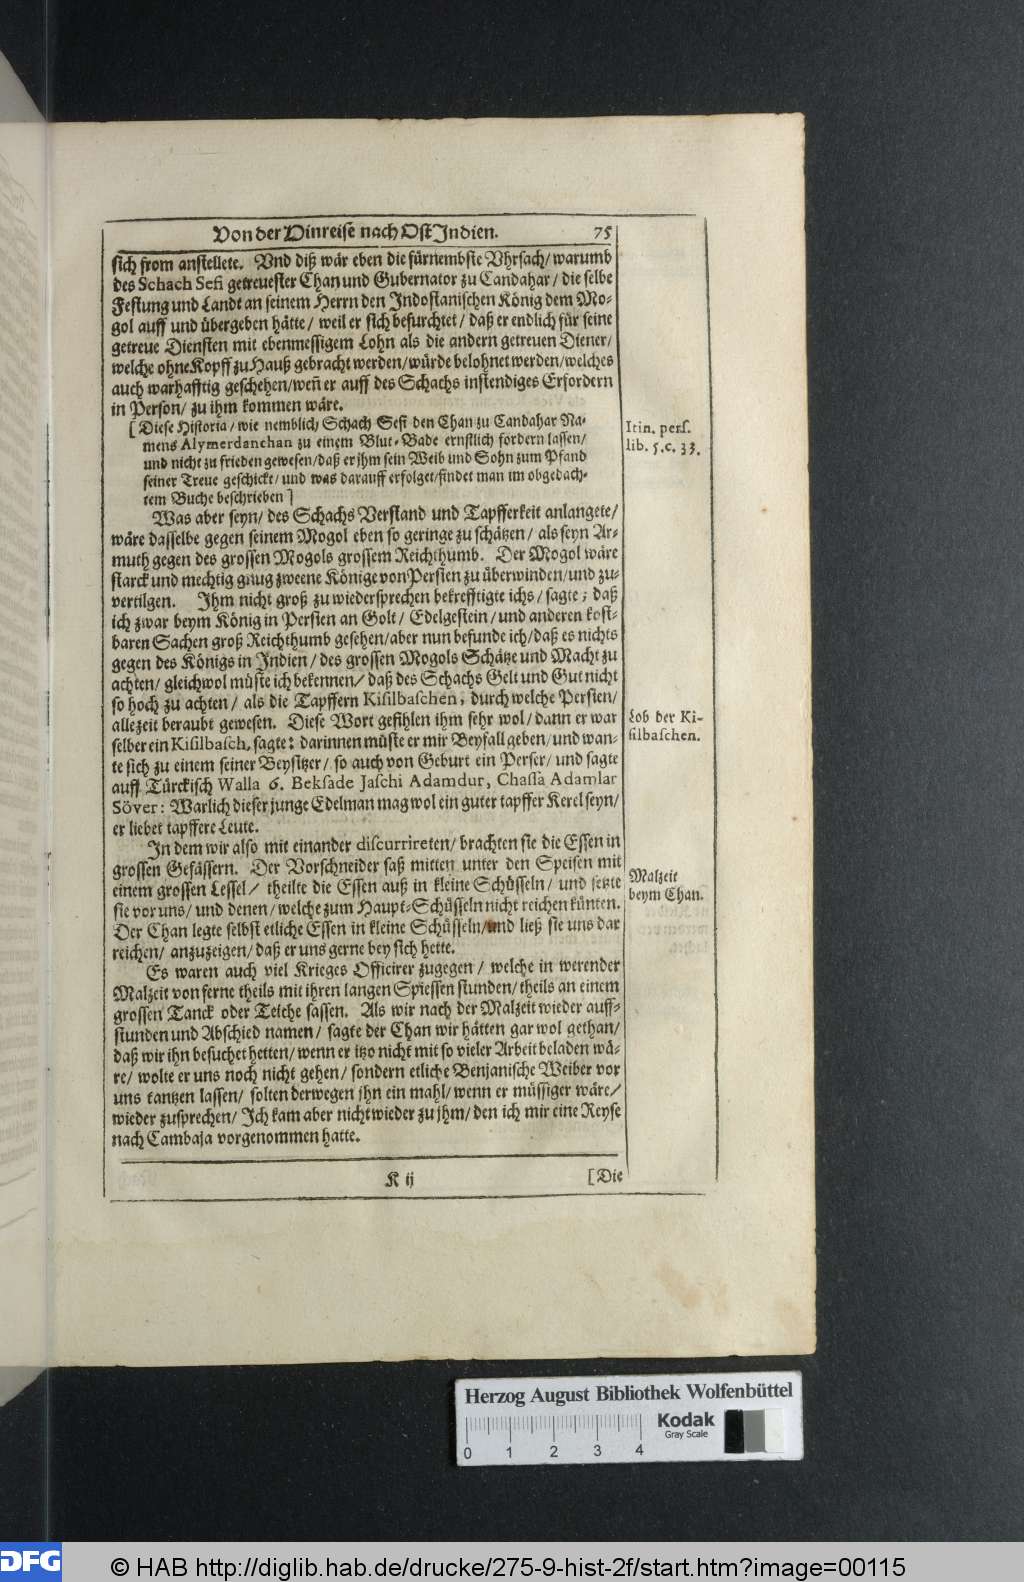 Von der Hinreise nach Ost Indien. 75
sich from anstellete. Vnd diß wär eben die fürnembste Vhrsach/ warumb
des Schach Sefi getreuester Chan und Gubernator zu Candahar/ die selbe
Festung und Landt an seinem Herrn den Indostanischen König dem Mo-
gol auff und übergeben hätte/ weil er sich befurchtet/ daß er endlich für seine
getreue Diensten mit ebenmessigem Lohn als die andern getreuen Diener/
welche ohne Kopff zu Hauß gebracht werden/ würde belohnet werden/ welches
auch warhafftig geschehen/ weñ er auff des Schachs instendiges Erfordern
in Person/ zu ihm kommen wäre.
[Diese Historia/ wie nemblich Schach Sefi den Chan zu Candahar Na-
mens Alymerdanchan zu einem Blut-Bade ernstlich fordern lassen/
und nicht zu frieden gewesen/ daß er ihm sein Weib und Sohn zum Pfand
seiner Treue geschickt/ und was darauff erfolget/ findet man im obgedach-
tem Buche beschrieben]
Itin. pers.
lib. 5. c. 33.
Was aber seyn/ des Schachs Verstand und Tapfferkeit anlangete/
wäre dasselbe gegen seinem Mogol eben so geringe zu schätzen/ als seyn Ar-
muth gegen des grossen Mogols grossem Reichthumb. Der Mogol wäre
starck und mechtig gnug zweene Könige von Persien zu überwinden/ und zu-
vertilgen. Ihm nicht groß zu wiedersprechen bekrefftigte ichs/ sagte; daß
ich zwar beym König in Persien an Golt/ Edelgestein/ und anderen kost-
baren Sachen groß Reichthumb gesehen/ aber nun befunde ich/ daß es nichts
gegen des Königs in Indien/ des grossen Mogols Schätze und Macht zu
achten/ gleichwol müste ich bekennen/ daß des Schachs Gelt und Gut nicht
so hoch zu achten/ als die Tapffern Kisilbaschen, durch welche Persien/
allezeit beraubt gewesen. Diese Wort gefihlen ihm sehr wol/ dann er war
selber ein Kisilbasch, sagte: darinnen müste er mir Beyfall geben/ und wan-
te sich zu einem seiner Beysitzer/ so auch von Geburt ein Perser/ und sagte
auff Türckisch Walla 6. Beksade Jaschi Adamdur, Chassa Adamlar
Söver: Warlich dieser junge Edelman mag wol ein guter tapffer Kerel seyn/
er liebet tapffere Leute.
Lob der Ki-
silbaschen.
In dem wir also mit einander discurrireten/ brachten sie die Essen in
grossen Gefässern. Der Vorschneider saß mitten unter den Speisen mit
einem grossen Lessel/ theilte die Essen auß in kleine Schüsseln/ und setzte
sie vor uns/ und denen/ welche zum Haupt-Schüsseln nicht reichen künten.
Der Chan legte selbst etliche Essen in kleine Schüsseln/ und ließ sie uns dar
reichen/ anzuzeigen/ daß er uns gerne bey sich hette.
Malzeit
beym Chan.
Es waren auch viel Krieges Officirer zugegen/ welche in werender
Malzeit von ferne theils mit ihren langen Spiessen stunden/ theils an einem
grossen Tanck oder Teiche sassen. Als wir nach der Malzeit wieder auff-
stunden und Abschied namen/ sagte der Chan wir hätten gar wol gethan/
daß wir ihn besuchet hetten/ wenn er itzo nicht mit so vieler Arbeit beladen wä-
re/ wolte er uns noch nicht gehen/ sondern etliche Benjanische Weiber vor
uns tantzen lassen/ solten derwegen jhn ein mahl/ wenn er müssiger wäre/
wieder zusprechen/ Ich kam aber nicht wieder zu jhm/ den ich mir eine Reyse
nach Cambaja vorgenommen hatte.
K ij [Die
Herzog August Bibliothek Wolfenbüttel
Kodak
Gray Scale
0 1 2 3 4
DFG © HAB http://diglib.hab.de/drucke/275-9-hist-2f/start.htm?image=00115